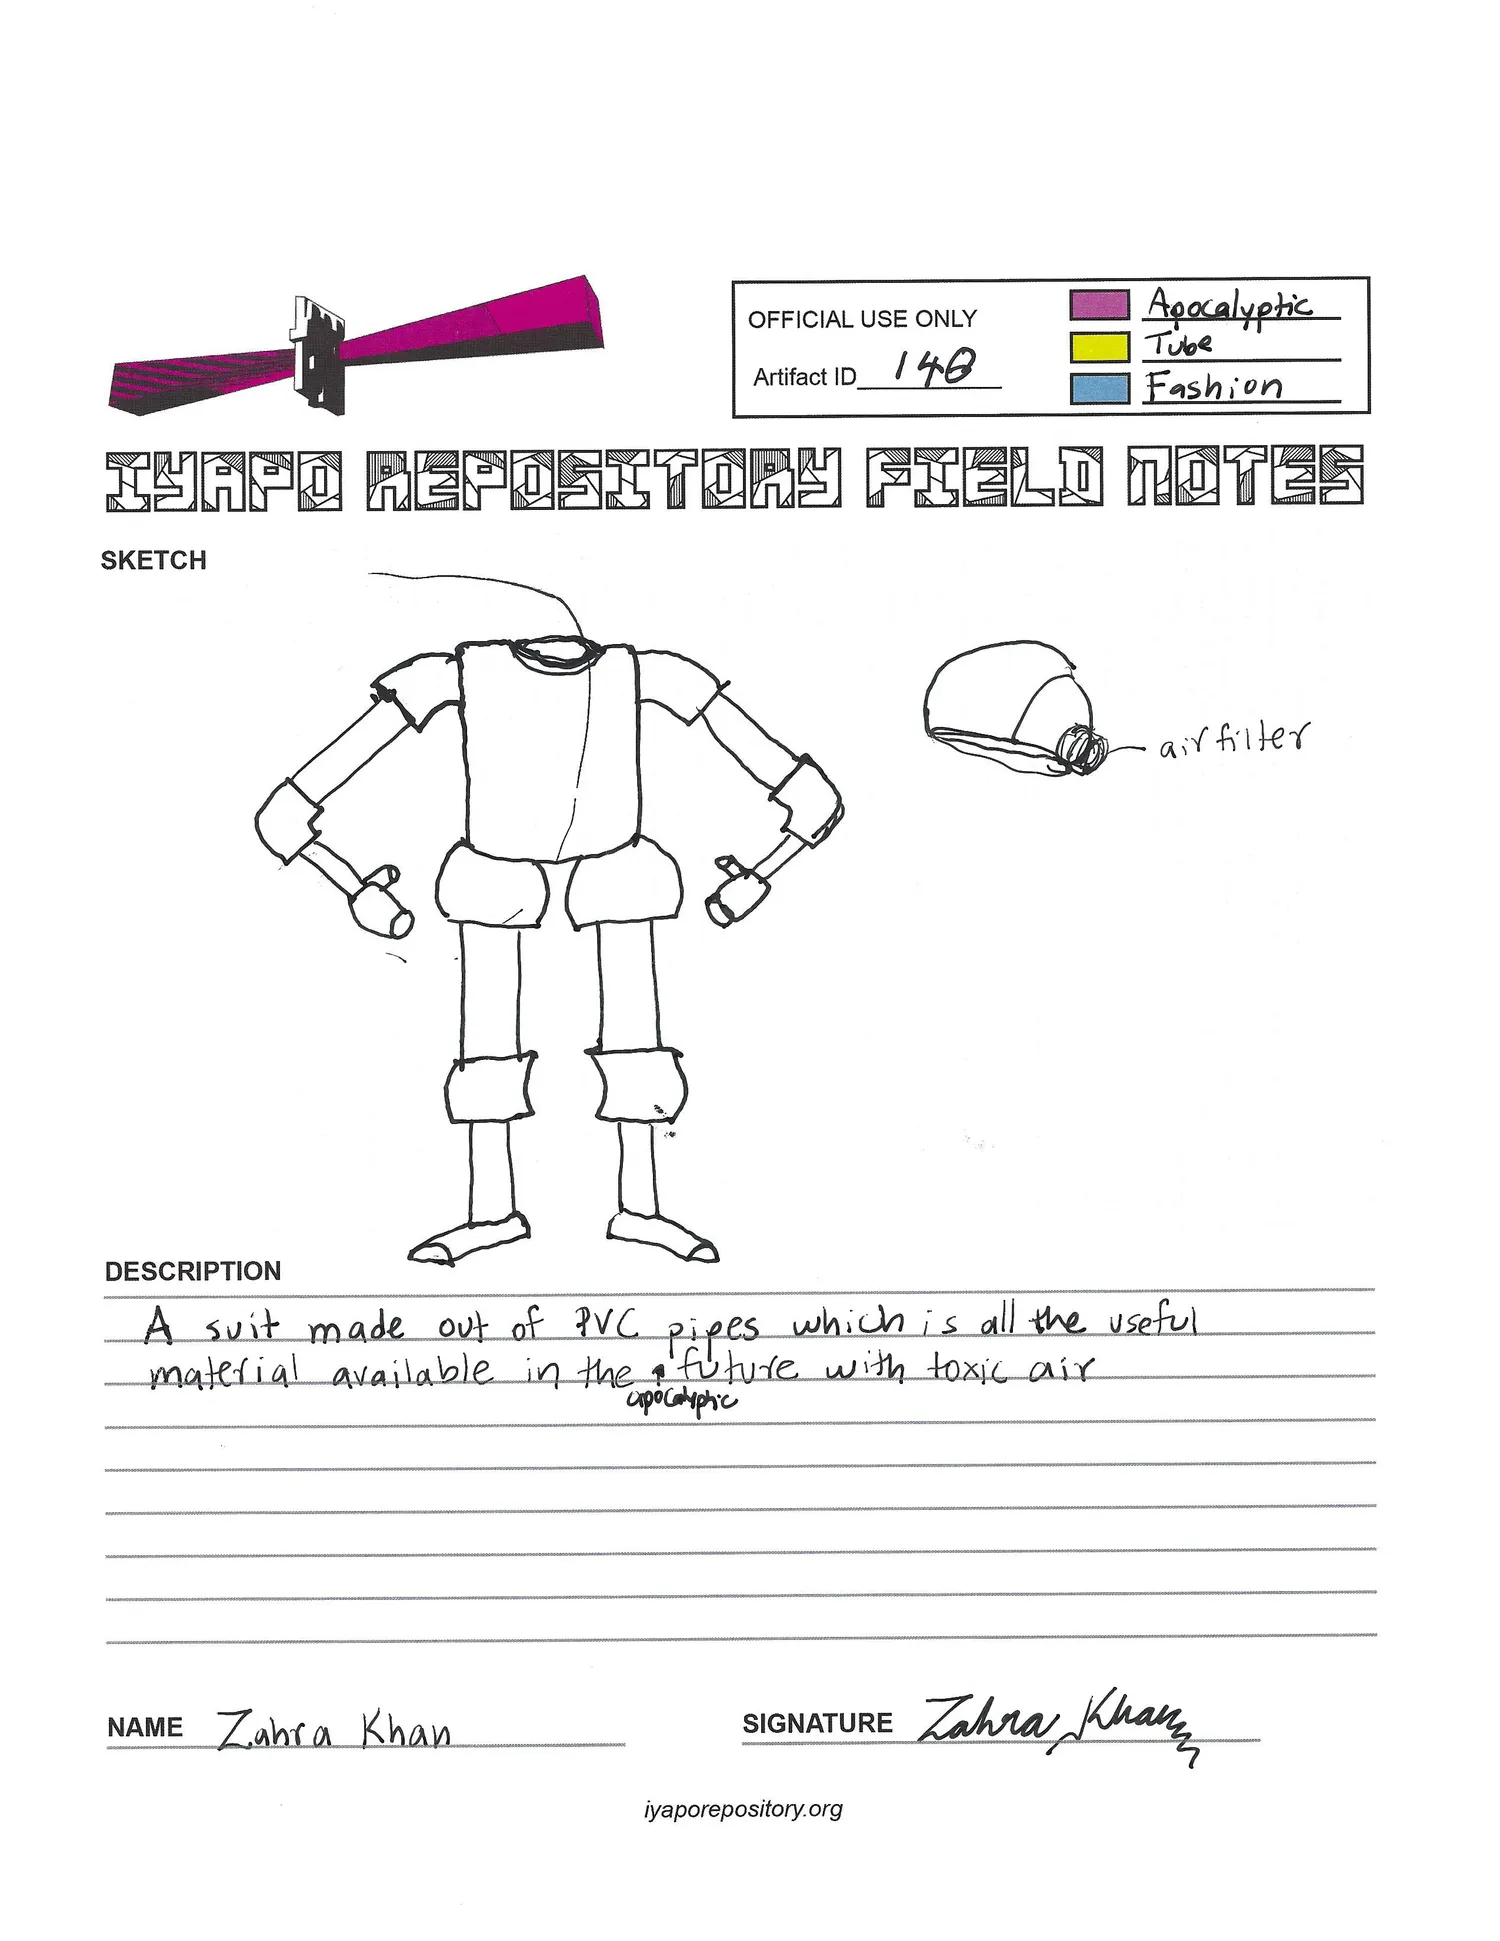 OFFICIAL USE ONLY
Artifact ID
Apocalyptic
Tube
Fashion
IYAPO REPOSITORY FIELD NOTES
SKETCH
air filter
DESCRIPTION
A suit made out of PVC pipes which is all the useful
material available in the apocalyptic future with toxic air
NAME Zahra Khan
SIGNATURE Zahra Khan
iyaporepository.org